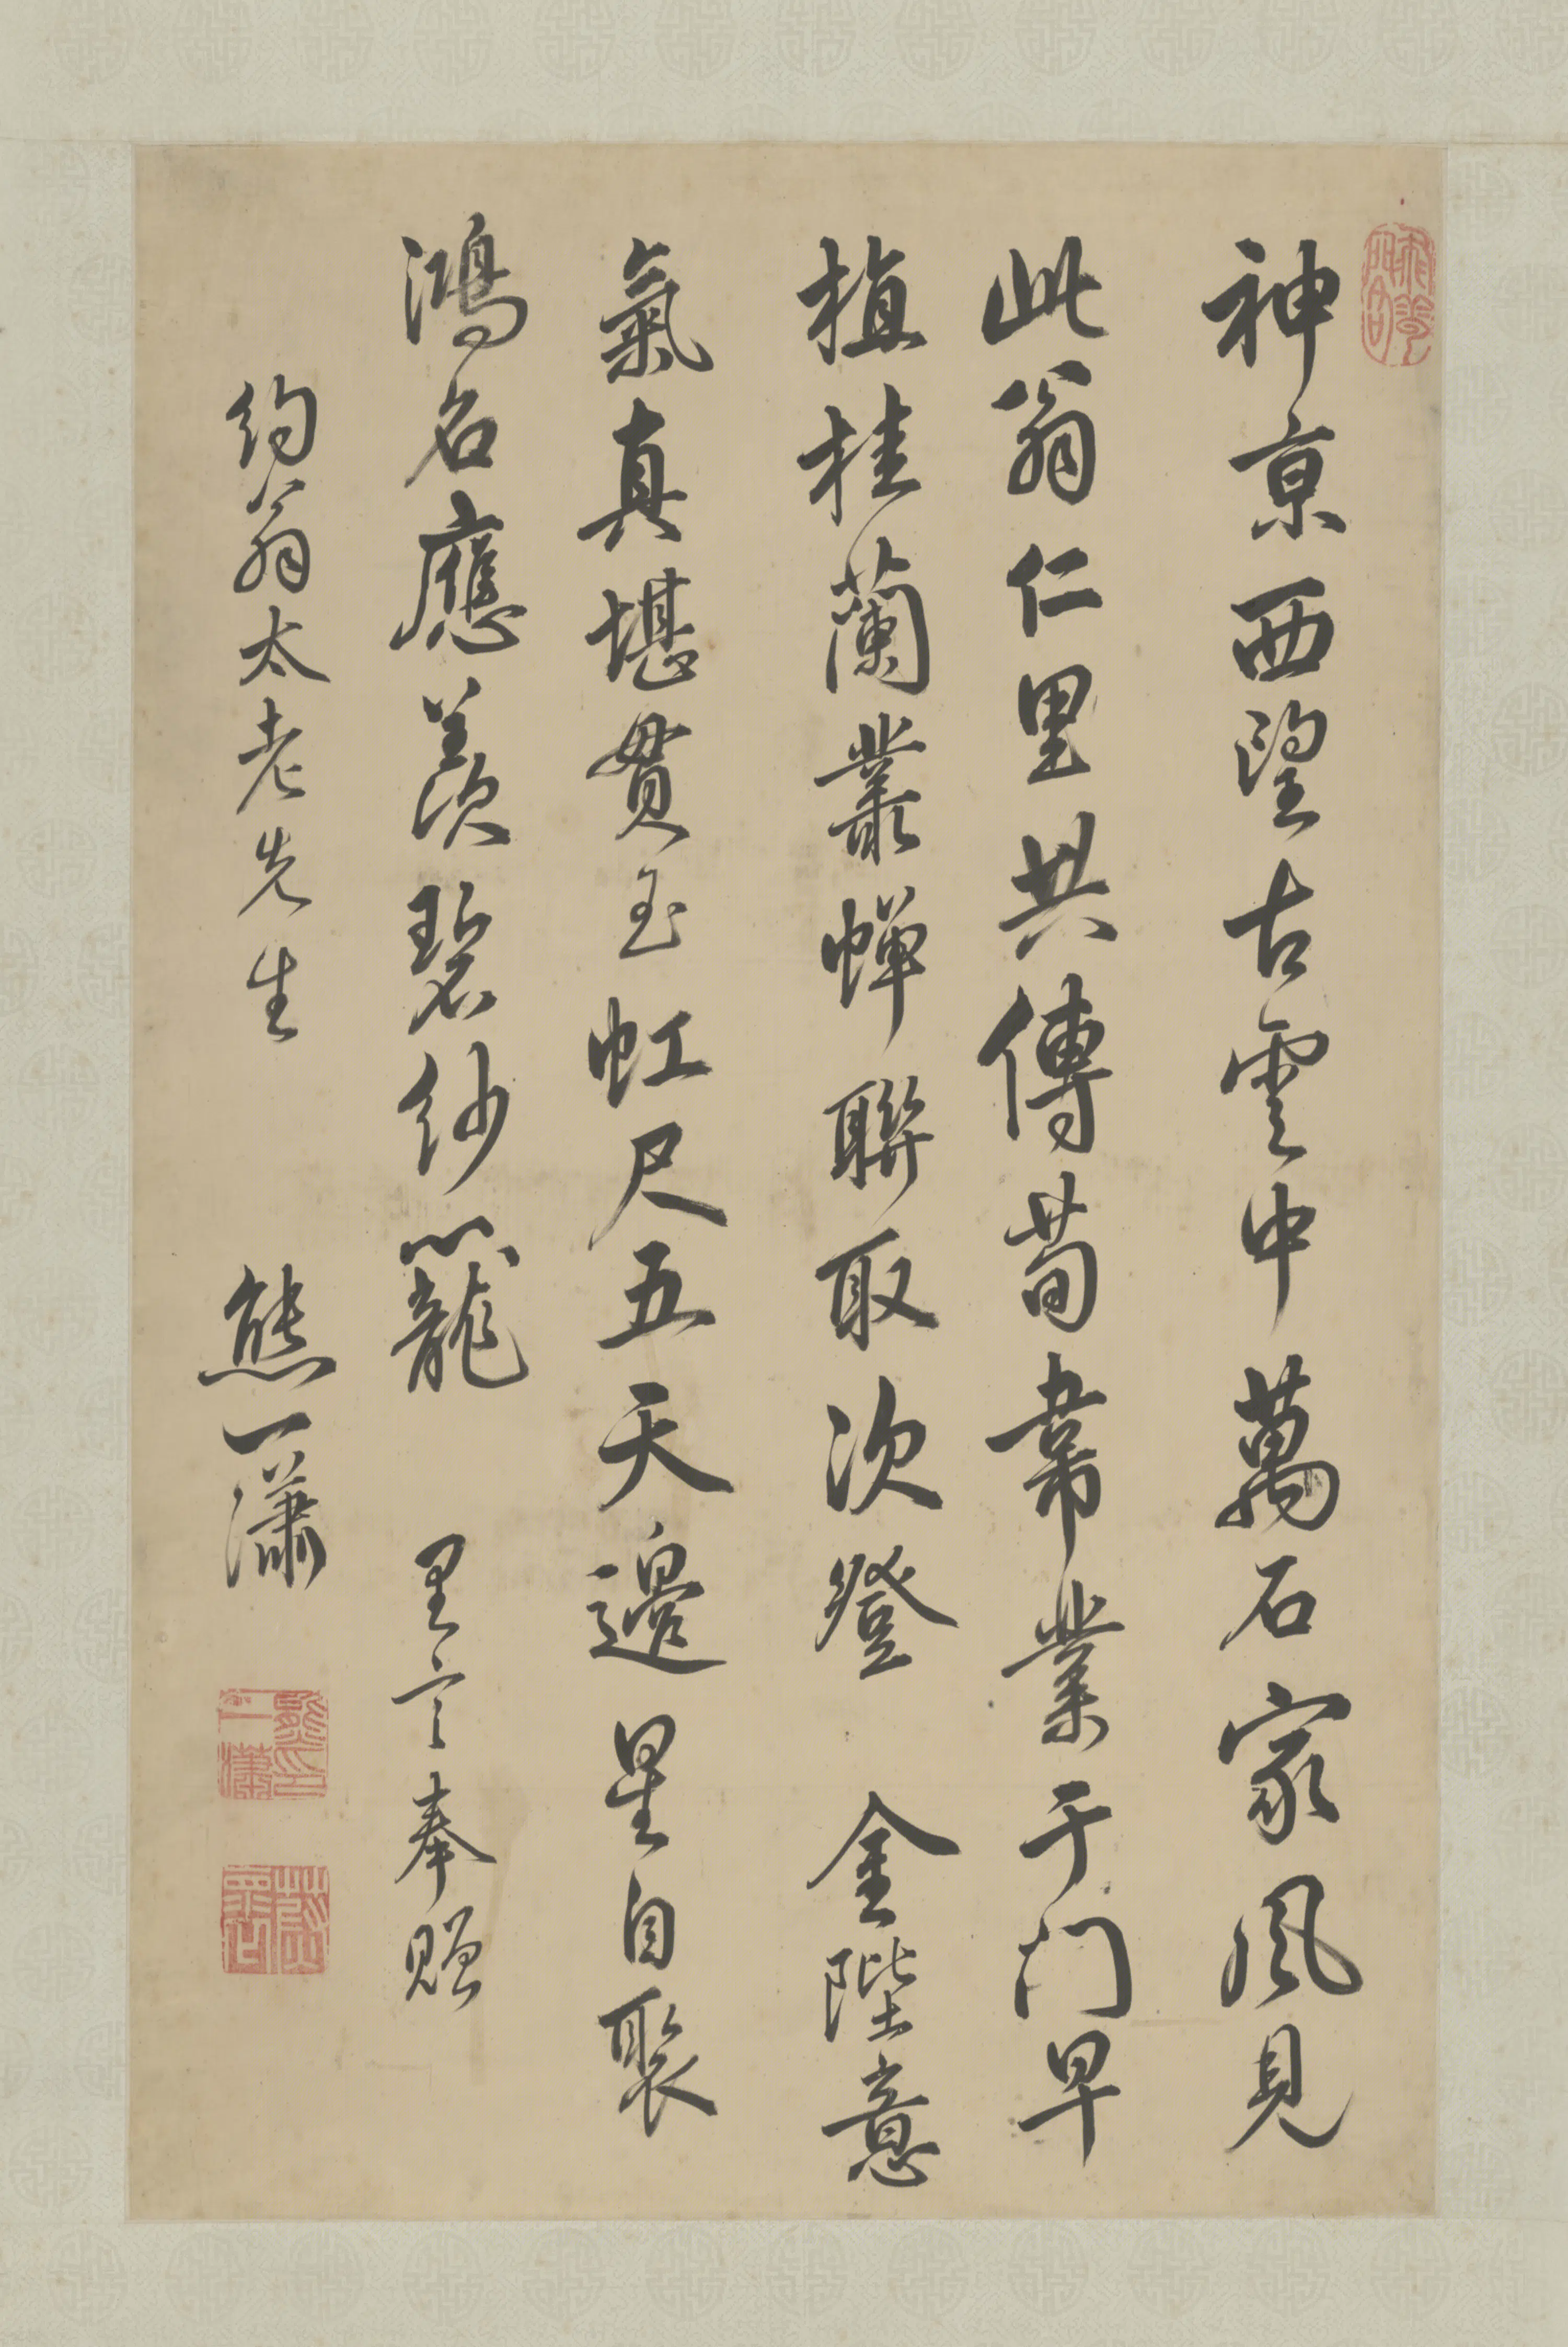 神京西望古雲中萬石家風見
此翁仁里共傳荀韋業于门早
植桂蘭叢蟬聯取次登金陛意
氣真堪貫玉虹尺五天邊星自聚
鴻名應羨碧紗籠 里言奉贈
約翁太老先生 熊一瀟
熊印一瀟